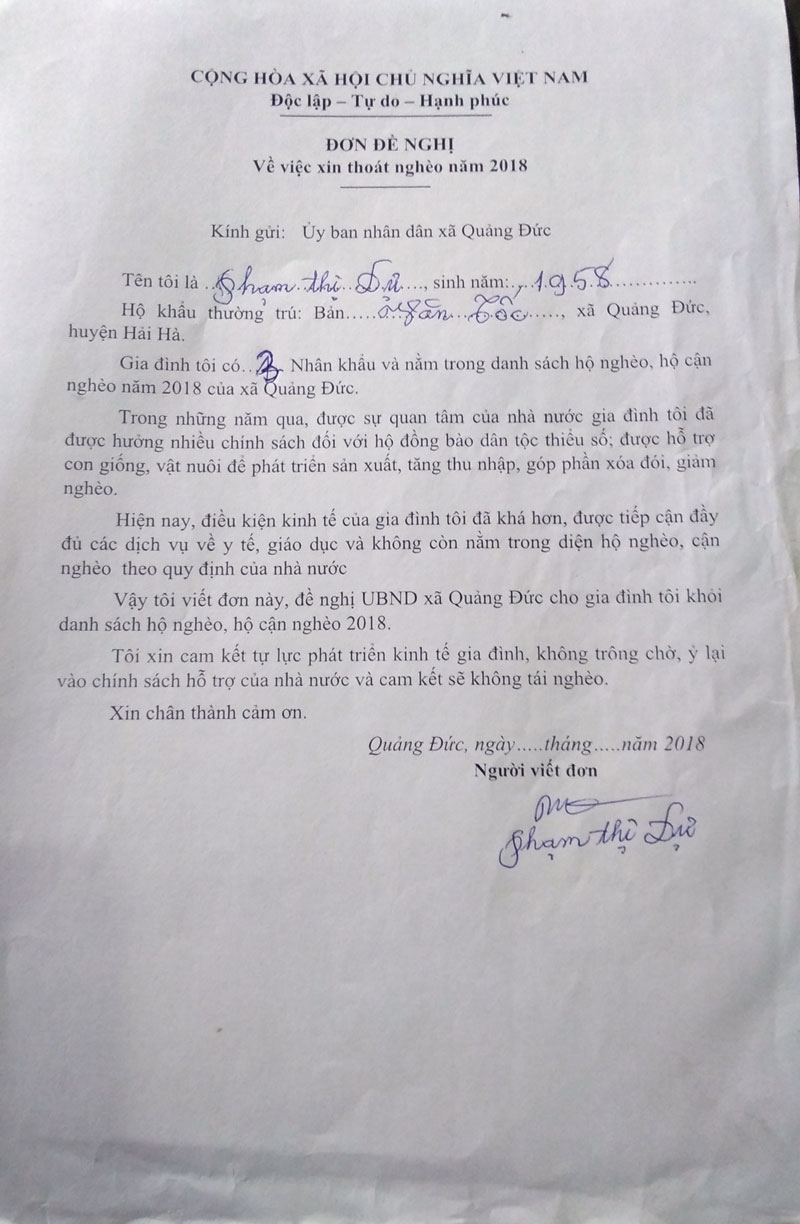 CỘNG HÒA XÃ HỘI CHỦ NGHĨA VIỆT NAM
Độc lập – Tự do – Hạnh phúc
ĐƠN ĐỀ NGHỊ
Về việc xin thoát nghèo năm 2018
Kính gửi: Ủy ban nhân dân xã Quảng Đức
Tên tôi là ..Phạm.thị..Dự...., sinh năm:...1.9.5.8..............
Hộ khẩu thường trú: Bản....., xã Quảng Đức,
huyện Hải Hà.
Gia đình tôi có.. Nhân khẩu và nằm trong danh sách hộ nghèo, hộ cận
nghèo năm 2018 của xã Quảng Đức.
Trong những năm qua, được sự quan tâm của nhà nước gia đình tôi đã
được hưởng nhiều chính sách đối với hộ đồng bào dân tộc thiểu số; được hỗ trợ
con giống, vật nuôi để phát triển sản xuất, tăng thu nhập, góp phần xóa đói, giảm
nghèo.
Hiện nay, điều kiện kinh tế của gia đình tôi đã khá hơn, được tiếp cận đầy
đủ các dịch vụ về y tế, giáo dục và không còn nằm trong diện hộ nghèo, cận
nghèo theo quy định của nhà nước
Vậy tôi viết đơn này, đề nghị UBND xã Quảng Đức cho gia đình tôi khỏi
danh sách hộ nghèo, hộ cận nghèo 2018.
Tôi xin cam kết tự lực phát triển kinh tế gia đình, không trông chờ, ỷ lại
vào chính sách hỗ trợ của nhà nước và cam kết sẽ không tái nghèo.
Xin chân thành cảm ơn.
Quảng Đức, ngày.....tháng.....năm 2018
Người viết đơn
Phạm thị Dự